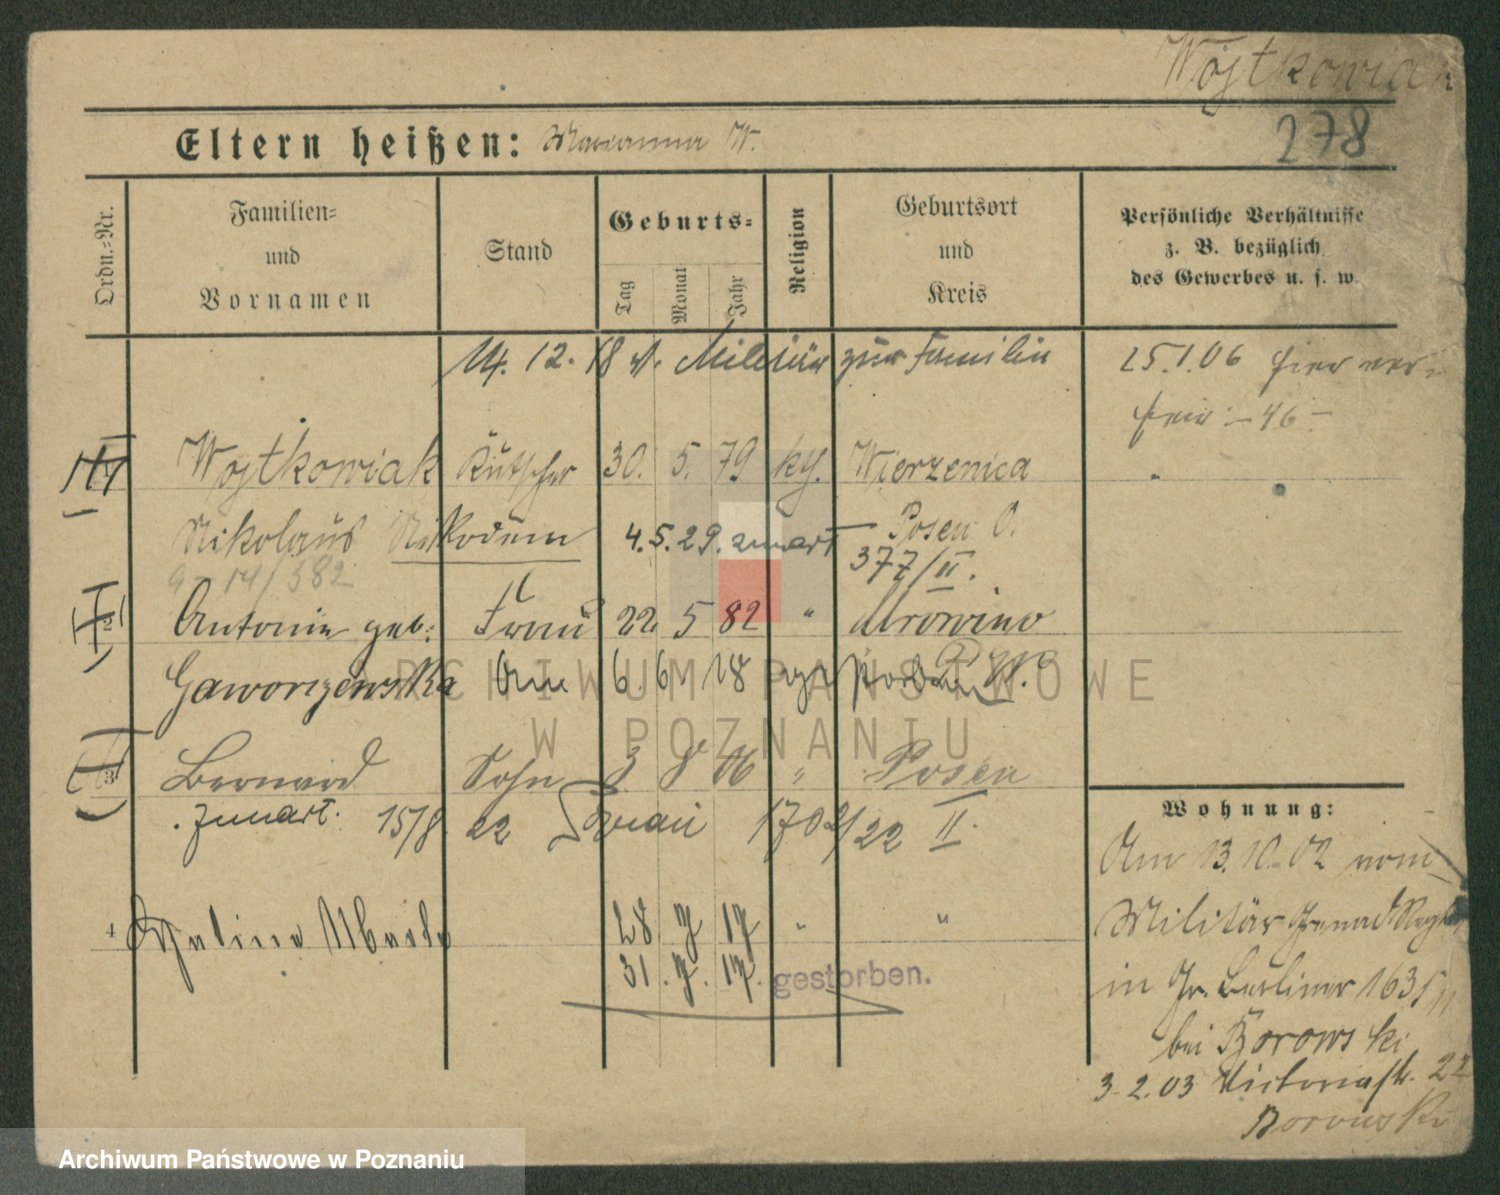 Wojtkowiak
278
Eltern heißen: Marianna W.
Ordn.-Nr.
Familien-
und
Vornamen
Stand
Geburts-
Tag
Monat
Jahr
Religion
Geburtsort
und
Kreis
Persönliche Verhältnisse
z. B. bezüglich
des Gewerbes u. s. w.
14. 12. 18 v. Militär zur Familie
25.1.06 hier
46
Wojtkowiak Kutscher 30. 5. 79 kg. Wierzenica
Nikolaus Nikodem 4.5.29. Posen O.
377/II.
14/382
2 Antonie geb. Frau 22 5 82 " Mrowino
Gaworzewska 6. 6. 18
3 Bernard Sohn 3 8 06 " Posen
15/8 22 Frau 1702/22 II.
4 28 7 17 " "
31. 7. 17. gestorben.
Wohnung:
Am 13.10.02 vom
Militär Grenad Regt
in Gr. Berliner 163
bei Borowski
3.2.03 Victoriastr. 22
Borowski
ARCHIWUM PAŃSTWOWE
W POZNANIU
Archiwum Państwowe w Poznaniu